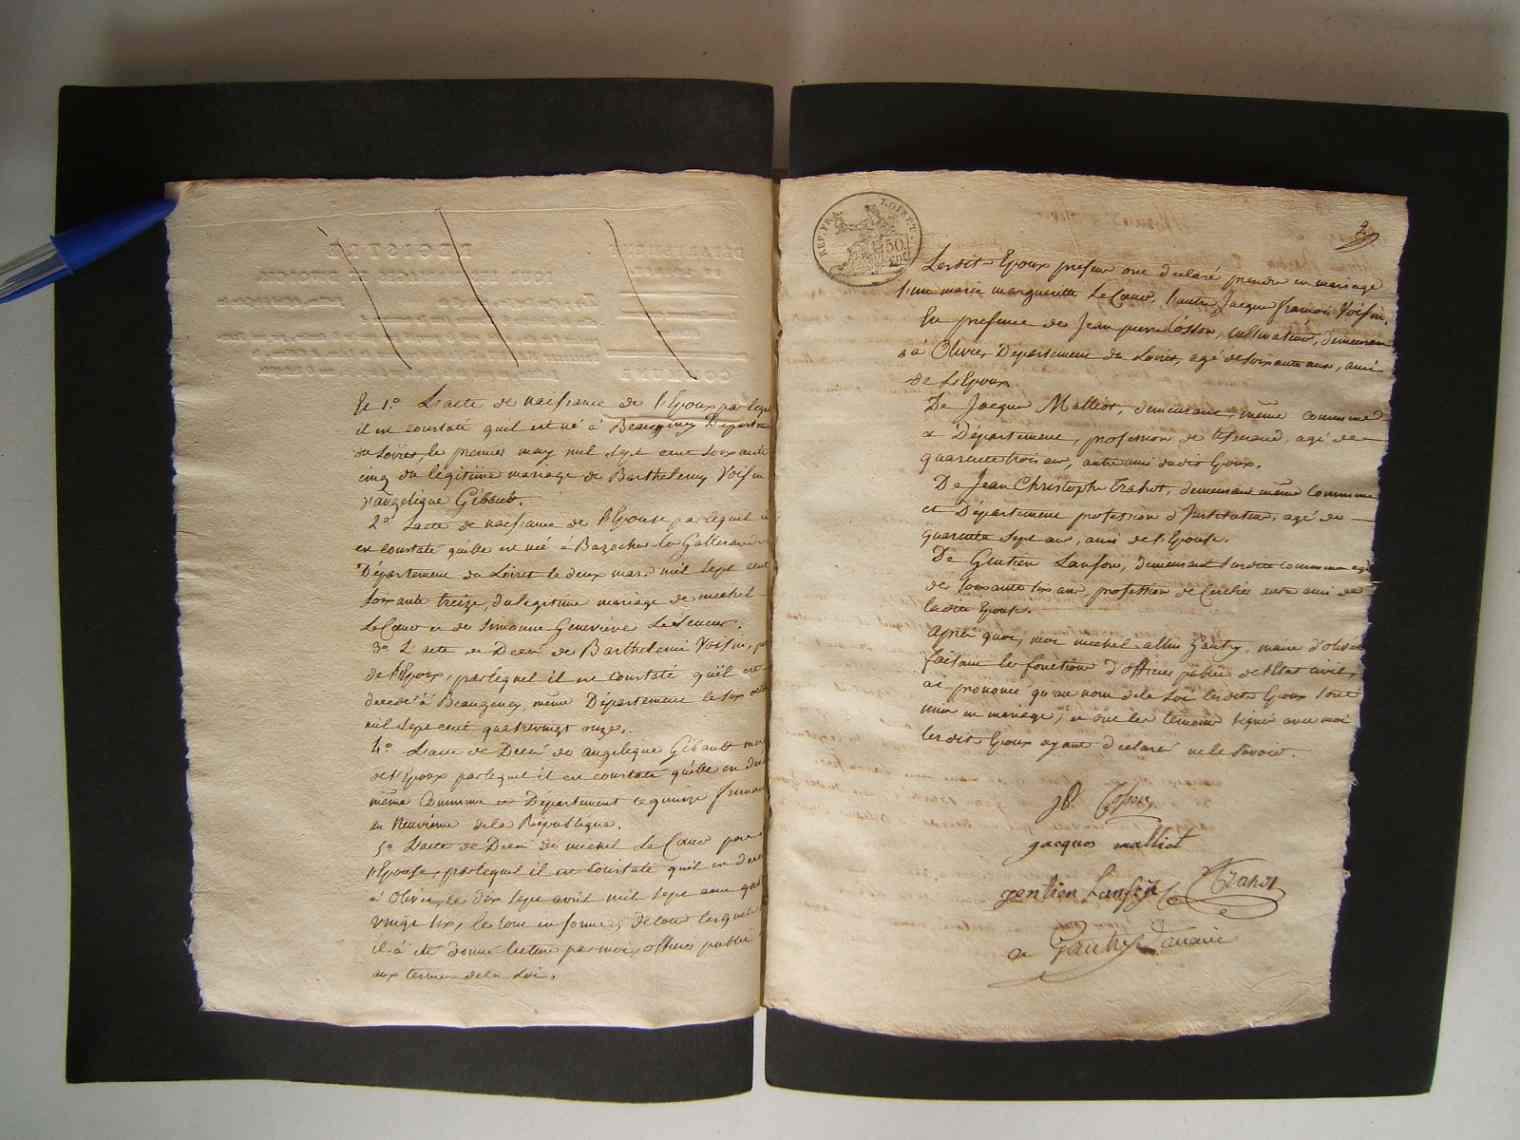 Et 1.° L'acte de naissance de l'Epoux par lequel
il est constaté quil est né à Beaugency Départem
du Loiret, le premier may mil sept cent soixante
cinq du légitime mariage de Barthelemy Voisin
d'angelique Gibault.
2.° L'acte de naissance de l'Epouse, par lequel il
est constaté quelle est née à Bazoches les Gallerandes
Département du Loiret le deux mars mil sept cent
soixante treize, du legitime mariage de michel
Le Cœur et de simonne Geneviève Le Sueur.
3.° L'acte de Decés de Barthelemi Voisin, pere
de l'Epoux, par lequel il est constaté qu'il est
decedé à Beaugency même Département le six
mil sept cent quatrevingt onze.
4.° L'acte de Decés de angelique Gibault
de l'Epoux par lequel il est constaté quelle est
même Commune et Département le quinze
an Neuvième de la République.
5.° L'acte de Decés de michel Le Cœur pere
l'Epouse, par lequel il est constaté quil est
à Olivet, le dix sept avril mil sept cent quat
vingt six, le tout en forme; de tous lesquels
il a été donné lecture par moi, officier public
aux termes de la Loi.
REP. FRA. LOIRET.
50
2
Lesdits Epoux presens ont declaré prendre en mariage
l'une marie margueritte Le Cœur, l'autre Jacque françois Voisin.
En presence de Jean pierre Cosson, cultivateur, demeurant
à Olivet, Département du Loiret, agé de soixante ans, ami
de L'Epoux
De Jacque Malliot, demeurant, même commune
et Département, profession de agé de
quarente trois ans, autre ami dudit Epoux.
De Jean Christophe Trahot, demeurant même Commune
et Département profession d'Instituteur, agé de
quarente sept ans, ami de l'Epouse.
De Gentien Lanson, demeurant susditte commune agé
de soixante six ans, profession de autre ami de
laditte Epouse.
Après quoi, moi michel albin Gautry, maire d'olivet
faisant les fonctions d'officier public de l'Etat civil,
ai prononcé qu'au nom de la Loi lesdits Epoux sont
unis en mariage; et ont les temoins signés avec moi
lesdits Epoux ayant declaré ne le savoir.
jacques malliot
gentien Trahot
Gautry maire